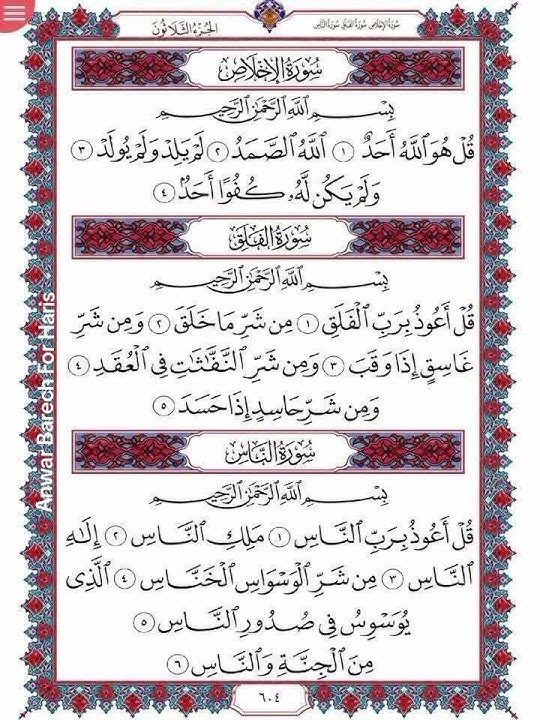 سُورَةُ الإِخْلَاصِ سُورَةُ الفَلَقِ سُورَةُ النَّاسِ
الجُزْءُ الثَّلَاثُونَ
سُورَةُ الإِخْلَاصِ
بِسْمِ ٱللَّهِ ٱلرَّحْمَٰنِ ٱلرَّحِيمِ
قُلْ هُوَ ٱللَّهُ أَحَدٌ ١ ٱللَّهُ ٱلصَّمَدُ ٢ لَمْ يَلِدْ وَلَمْ يُولَدْ ٣
وَلَمْ يَكُن لَّهُۥ كُفُوًا أَحَدٌۢ ٤
سُورَةُ الفَلَقِ
بِسْمِ ٱللَّهِ ٱلرَّحْمَٰنِ ٱلرَّحِيمِ
قُلْ أَعُوذُ بِرَبِّ ٱلْفَلَقِ ١ مِن شَرِّ مَا خَلَقَ ٢ وَمِن شَرِّ
غَاسِقٍ إِذَا وَقَبَ ٣ وَمِن شَرِّ ٱلنَّفَّٰثَٰتِ فِى ٱلْعُقَدِ ٤
وَمِن شَرِّ حَاسِدٍ إِذَا حَسَدَ ٥
سُورَةُ النَّاسِ
بِسْمِ ٱللَّهِ ٱلرَّحْمَٰنِ ٱلرَّحِيمِ
قُلْ أَعُوذُ بِرَبِّ ٱلنَّاسِ ١ مَلِكِ ٱلنَّاسِ ٢ إِلَٰهِ
ٱلنَّاسِ ٣ مِن شَرِّ ٱلْوَسْوَاسِ ٱلْخَنَّاسِ ٤ ٱلَّذِى
يُوَسْوِسُ فِى صُدُورِ ٱلنَّاسِ ٥
مِنَ ٱلْجِنَّةِ وَٱلنَّاسِ ٦
٦٠٤
Anwar Barech For Haris